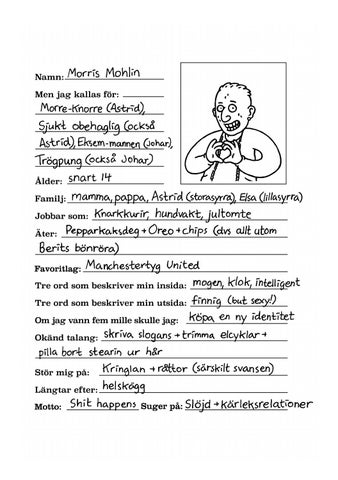 Namn: Morris Mohlin
Men jag kallas för:
Morre-Knorre (Astrid),
Sjukt obehaglig (också
Astrid), Eksem-mannen (Johar),
Trögpung (också Johar)
Ålder: snart 14
Familj: mamma, pappa, Astrid (storasyrra), Elsa (lillasyrra)
Jobbar som: Knarkkurir, hundvakt, jultomte
Äter: Pepparkaksdeg + Oreo + chips (dvs allt utom
Berits bönröra)
Favoritlag: Manchestertyg United
Tre ord som beskriver min insida: mogen, klok, intelligent
Tre ord som beskriver min utsida: finnig (but sexy!)
Om jag vann fem mille skulle jag: köpa en ny identitet
Okänd talang: skriva slogans + trimma elcyklar +
pilla bort stearin ur hår
Stör mig på: Kringlan + råttor (särskilt svansen)
Längtar efter: helskägg
Motto: Shit happens Suger på: Slöjd + kärleksrelationer